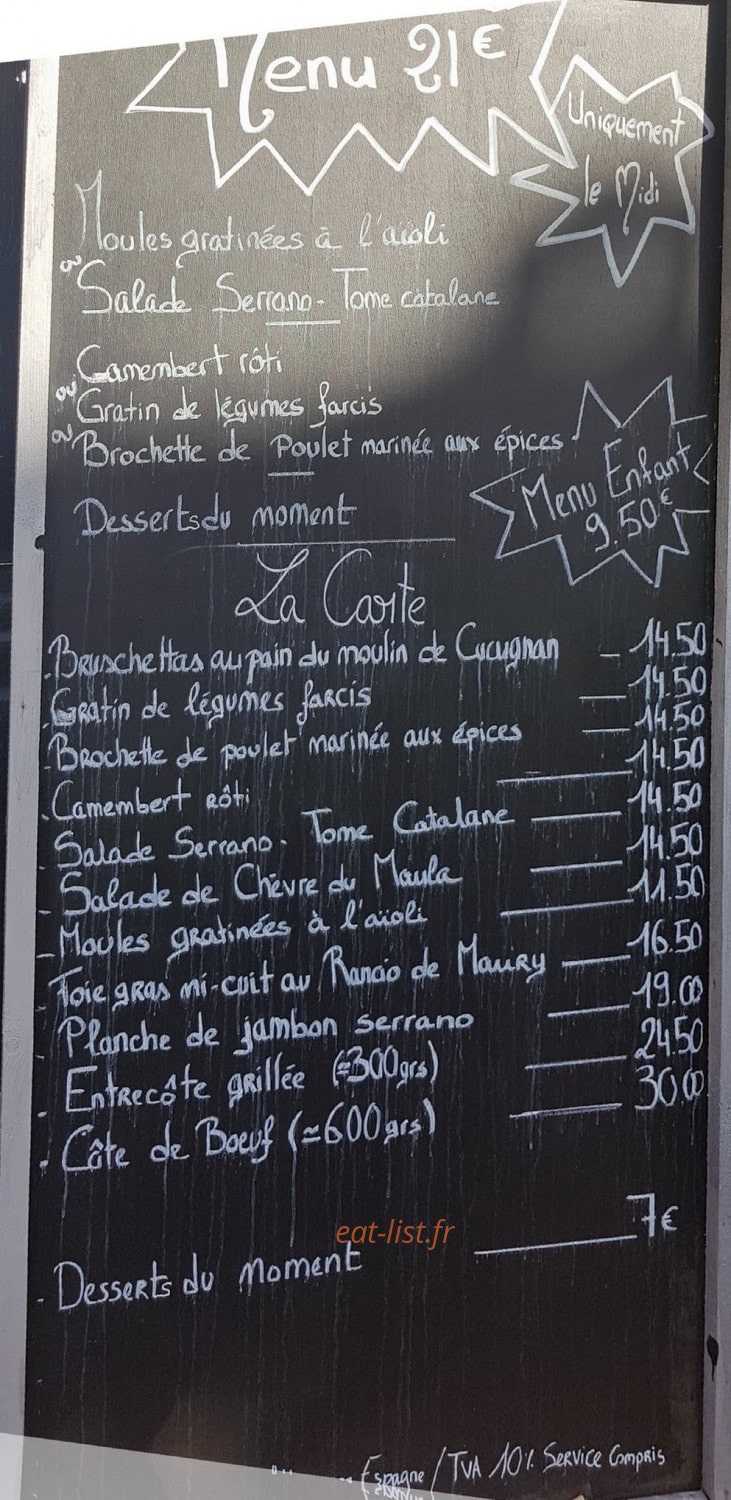 Menu 21€
Uniquement
le Midi
Moules gratinées à l'aïoli
ou
Salade Serrano - Tome catalane
Camembert rôti
ou
Gratin de légumes farcis
ou
Brochette de Poulet marinée aux épices
Menu Enfant
9.50€
Desserts du moment
La Carte
. Bruschettas au pain du moulin de Cucugnan _ 14.50
. Gratin de légumes farcis __ 14.50
. Brochette de poulet marinée aux épices __ 14.50
. Camembert rôti ____ 14.50
- Salade Serrano - Tome Catalane ___ 14.50
- Salade de Chèvre du Moula ___ 14.50
- Moules gratinées à l'aïoli ____ 11.50
- Foie gras mi-cuit au Rancio de Maury ___ 16.50
- Planche de jambon serrano ___ 19.00
- Entrecôte grillée (≃300grs) ___ 24.50
- Côte de Boeuf (≃600grs) ___ 30.00
eat-list.fr
- Desserts du moment _____ 7€
Espagne / TVA 10% Service Compris